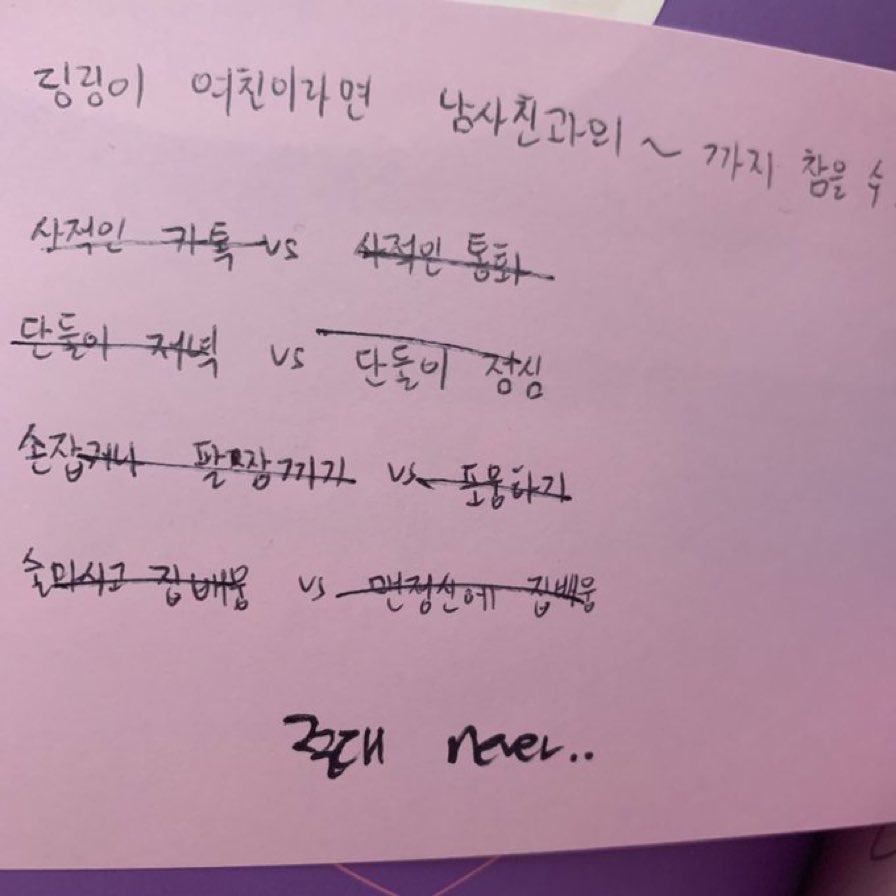 딩딩이 여친이라면 남사친과의 ~ 까지 참을 수
사적인 카톡 vs 사적인 통화
단둘이 저녁 vs 단둘이 점심
손잡거나 팔짱끼기 vs 포옹하기
술마시고 집배웅 vs 맨정신에 집배웅
never..